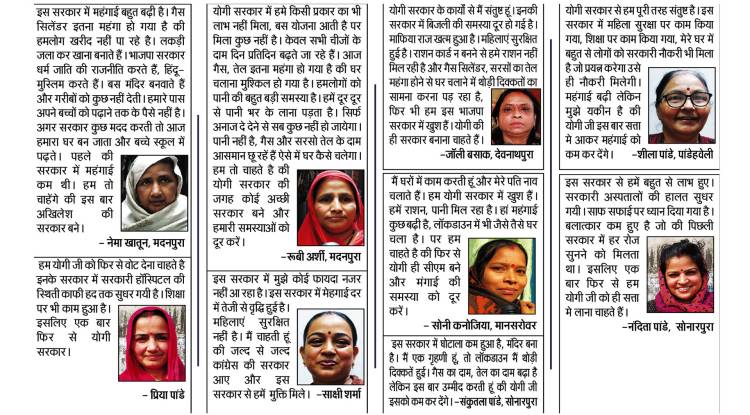 इस सरकार में महंगाई बहुत बढ़ी है। गैस
सिलेंडर इतना महंगा हो गया है की
हमलोग खरीद नही पा रहे है। लकड़ी
जला कर खाना बनाते हैं। भाजपा सरकार
धर्म जाति की राजनीति करते हैं, हिंदू-
मुस्लिम करते हैं। बस मंदिर बनवाते हैं
और गरीबों को कुछ नहीं देती। हमारे पास
अपने बच्चों को पढ़ाने तक के पैसे नहीं है।
अगर सरकार कुछ मदद करती तो आज
हमारा घर बन जाता और बच्चे स्कूल में
पढ़ते। पहले की
सरकार में महंगाई
कम थी। हम तो
चाहेंगे की इस बार
अखिलेश की
सरकार बने।
– नेमा खातून, मदनपुरा
हम योगी जी को फिर से वोट देना चाहते है
इनके सरकार में सरकारी हॉस्पिटल की
स्थिती काफी हद तक सुधर गयी है। शिक्षा
पर भी काम हुआ है।
इसलिए एक बार
फिर से योगी
सरकार।
– प्रिया पांडे
योगी सरकार में हमे किसी प्रकार का भी
लाभ नहीं मिला, बस योजना आती है पर
मिला कुछ नहीं है। केवल सभी चीजों के
दाम दिन प्रतिदिन बढ़ते जा रहे हैं। आज
गैस, तेल इतना महंगा हो गया है की घर
चलाना मुश्किल हो गया है। हमलोगों को
पानी की बहुत बड़ी समस्या है। हमें दूर दूर
से पानी भर के लाना पड़ता है। सिर्फ
अनाज दे देने से सब कुछ नहीं हो जायेगा।
पानी नहीं है, गैस और सरसो तेल के दाम
आसमान छू रहें हैं ऐसे में घर कैसे चलेगा।
हम तो चाहते है की
योगी सरकार की
जगह कोई अच्छी
सरकार बने और
हमारी समस्याओं को
दूर करें।
–रूबी अर्शी, मदनपुरा
इस सरकार में मुझे कोई फायदा नजर
नहीं आ रहा है। इस सरकार में मेहगाई दर
में तेजी से वृद्धि हुई है।
महिलाएं सुरक्षित
नहीं है। मैं चाहती हूं
की जल्द से जल्द
कांग्रेस की सरकार
आए और इस
सरकार से हमें मुक्ति मिले। –साक्षी शर्मा
योगी सरकार के कार्यों से मैं संतुष्ट हूं। इनकी
सरकार में बिजली की समस्या दूर हो गई है।
माफिया राज खत्म हुआ है। महिलाएं सुरक्षित
हुई है। राशन कार्ड न बनने से हमे राशन नहीं
मिल रही है और गैस सिलेंडर, सरसों का तेल
महंगा होने से घर चलाने में थोड़ी दिक्कतों का
सामना करना पड़ रहा है,
फिर भी हम इस भाजपा
सरकार में खुश हैं। योगी की
ही सरकार बनाना चाहते हैं।
–जॉली बसाक, देवनाथपुरा
मैं घरों में काम करती हूं और मेरे पति नाव
चलाते हैं। हम योगी सरकार में खुश हैं।
हमें राशन, पानी मिल रहा है। हां महंगाई
कुछ बढ़ी है, लॉकडाउन में भी जैसे तैसे घर
चला है। पर हम
चाहते है की फिर से
योगी ही सीएम बने
और मंगाई की
समस्या को दूर
करें।
– सोनी कनोजिया, मानसरोवर
इस सरकार में घोटाला कम हुआ है, मंदिर बना
है। मैं एक गृहणी हूं, तो लॉकडाउन में थोड़ी
दिक्कतें हुई। गैस का दाम, तेल का दाम बढ़ा है
लेकिन इस बार उम्मीद करती हूं की योगी जी
इसको कम कर देंगे। –संकुतला पांडे, सोनारपुरा
योगी सरकार से हम पूरी तरह संतुष्ट है। इस
सरकार में महिला सुरक्षा पर काम किया
गया, शिक्षा पर काम किया गया, मेरे घर में
बहुत से लोगों को सरकारी नौकरी भी मिला
है जो प्रयत्न करेगा उसे
ही नौकरी मिलेगी।
महंगाई बढ़ी लेकिन
मुझे यकीन है की
योगी जी इस बार सत्ता
मे आकर महंगाई को
कम कर देंगे। –शीला पांडे, पांडेहवेली
इस सरकार से हमें बहुत से लाभ हुए।
सरकारी अस्पतालों की हालत सुधर
गयी। साफ सफाई पर ध्यान दिया गया है।
बलात्कार कम हुए है जो की पिछली
सरकार में हर रोज
सुनने को मिलता
था। इसलिए एक
बार फिर से हम
योगी जी को ही सत्ता
मे लाना चाहते हैं।
–नंदिता पांडे, सोनारपुरा